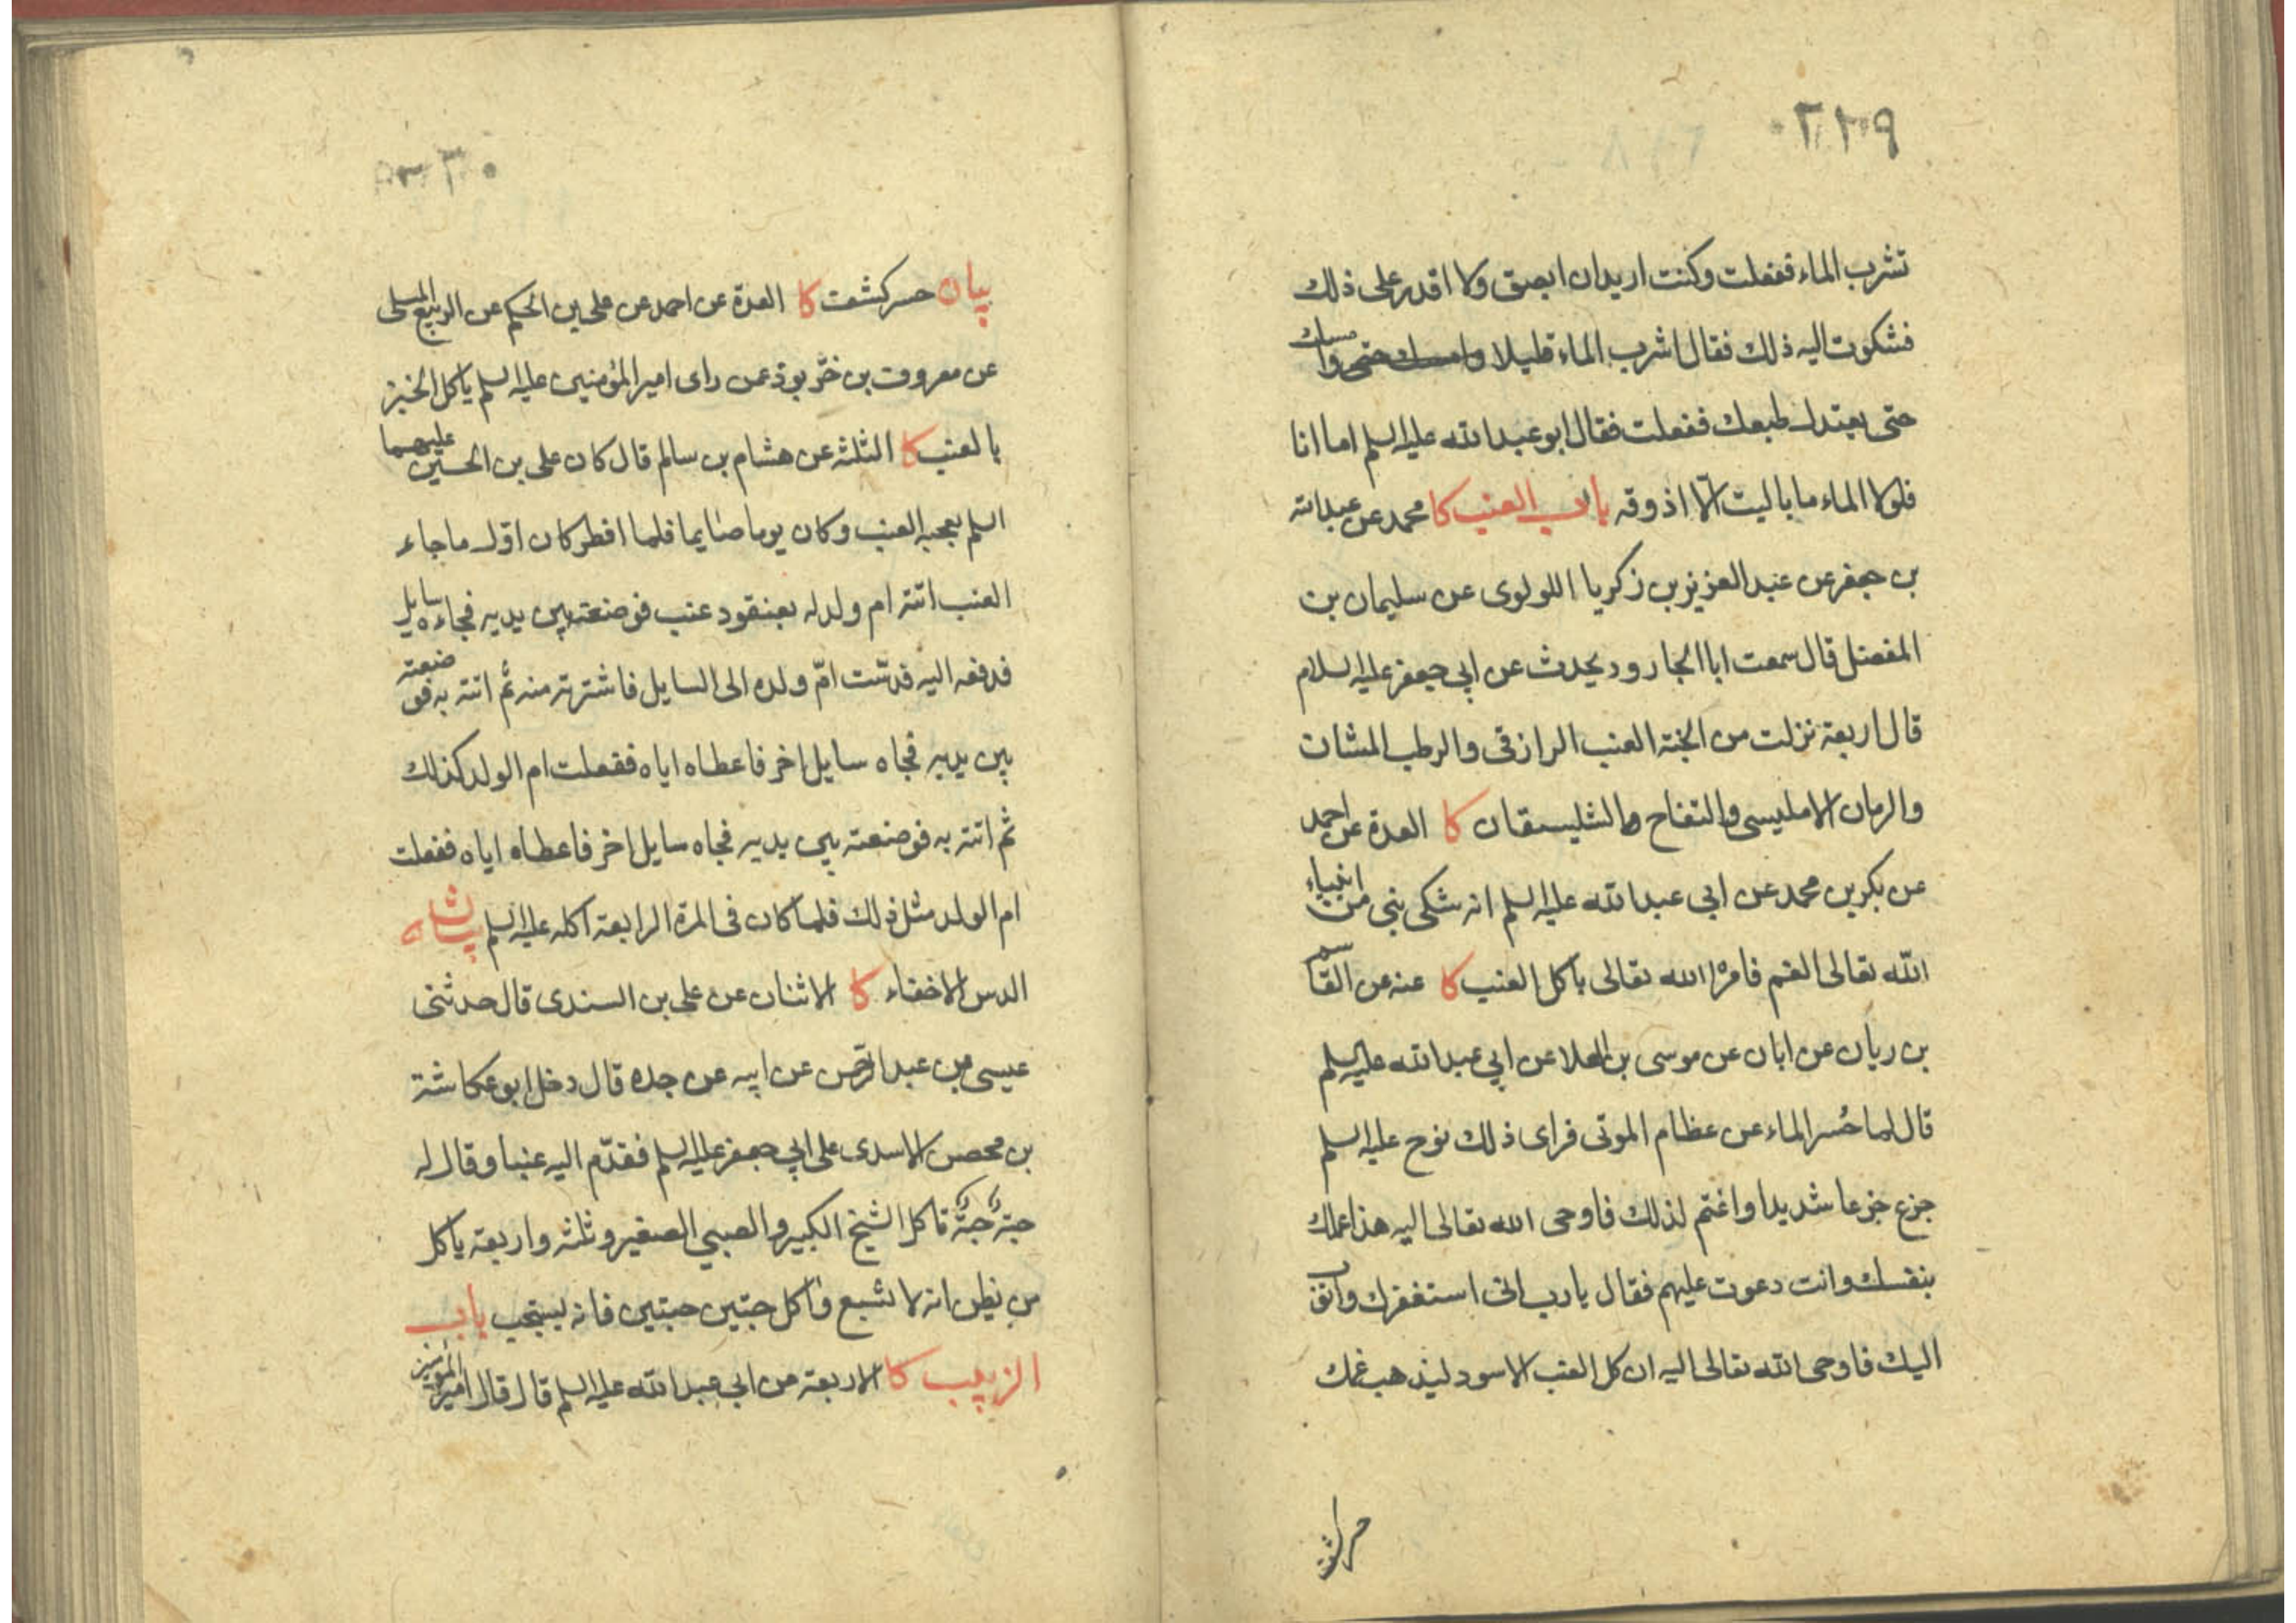 ٢٢٩
تشرب الماء ففعلت وكنت اريد ان ابصق ولا اقدر على ذلك
فشكوت اليه ذلك فقال اشرب الماء قليلا وامسك حتى وامسك
حتى يعتدل طبعك ففعلت فقال ابو عبد الله عليه السلم اما انا
فلولا الماء ما باليت الّا اذوقه باب العنب كا محمد عن عبد الله
بن جعفر عن عبد العزيز بن زكريا اللولوى عن سليمان بن
المفضل قال سمعت ابا الجارود يحدث عن ابي جعفر عليه السلام
قال اربعة نزلت من الجنة العنب الرازقى والرطب المشان
والرمان الامليسى والتفاح والشليسقان كا العدة عن احمد
عن بكر بن محمد عن ابي عبد الله عليه السلم انه شكى نبى من انبياء
الله تعالى الغم فامره الله تعالى باكل العنب كا عنه عن القاسم
بن ريان عن ابان عن موسى بن العلا عن ابي عبد الله عليه السلم
قال لما حُسر الماء عن عظام الموتى فراى ذلك نوح عليه السلم
جزع جزعا شديدا واغتم لذلك فاوحى الله تعالى اليه هذا عملك
بنفسك وانت دعوت عليهم فقال يا رب انى استغفرك واتوب
اليك فاوحى الله تعالى اليه ان كل العنب الاسود ليذهب غمك
٢٣٠
بيان حسر كشفت كا العدة عن احمد عن على بن الحكم عن الربيع المسلى
عن معروف بن خرّبوذ عمن راى امير المؤمنين عليه السلم ياكل الخبز
بالعنب كا الثلثة عن هشام بن سالم قال كان على بن الحسين عليهما
السلم يعجبه العنب وكان يوما صايما فلما افطر كان اوّل ما جاء
العنب اتته ام ولد له بعنقود عنب فوضعته بين يديه فجاءه سايل
فدفعه اليه فدسّت امّ ولده الى السايل فاشترته منه ثم اتته به فوضعته
بين يديه فجاه سايل اخر فاعطاه اياه ففعلت ام الولد كذلك
ثم اتته به فوضعته بين يديه فجاه سايل اخر فاعطاه اياه ففعلت
ام الولد مثل ذلك فلما كان فى المرة الرابعة اكله عليه السلم بيان
الدس الاخفاء كا الاثنان عن على بن السندى قال حدثنى
عيسى بن عبد الرحمن عن ابيه عن جده قال دخل ابو عكاشة
بن محصن الاسدى على ابي جعفر عليه السلم فقدّم اليه عنبا وقال له
حبّة حبّة تاكل الشيخ الكبير والصبي الصغير وثلثة واربعة ياكل
من يظن انه لا تشبع وٰاكل حبتين حبتين فانه يستحب باب
الزبيب كا الاربعة عن ابي عبد الله عليه السلم قال قال امير المؤمنين